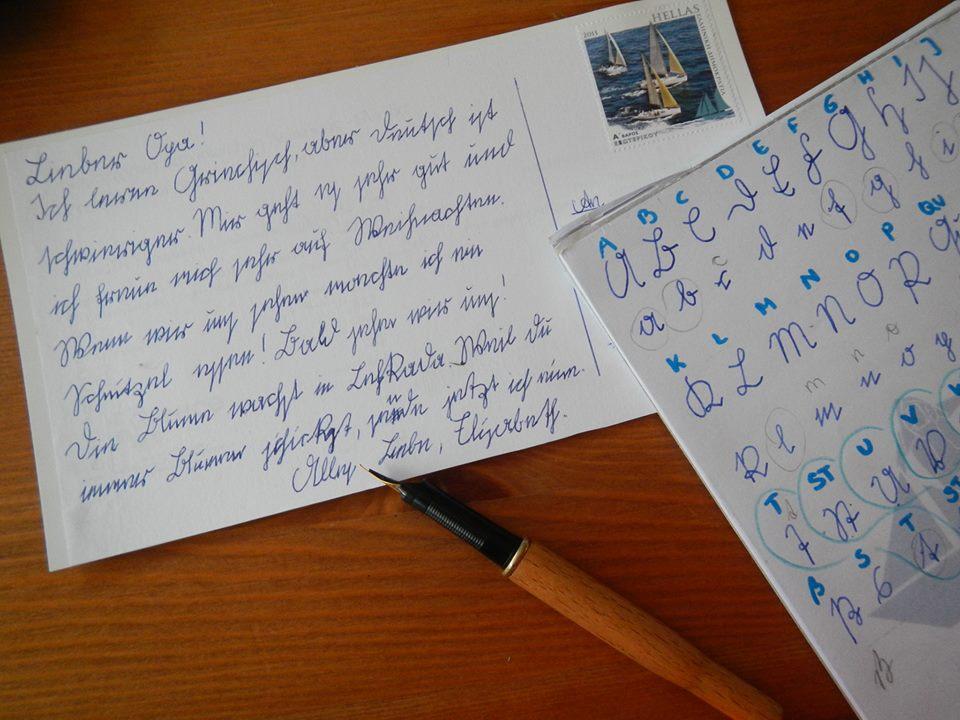 Lieber Opa!
Ich lerne Griechisch, aber Deutsch ist
schwieriger. Mir geht es sehr gut und
ich freue mich sehr auf Weihnachten.
Wenn wir uns sehen mochte ich ein
Schnitzel essen! Bald sehen wir uns!
Die Blume wachst in Lefkada. Weil du
immer Blumen schickst, sende jetzt ich eine.
Alles Liebe, Elizabeth.
2011 HELLAS
ΕΛΛΗΝΙΚΗ ΔΗΜΟΚΡΑΤΙΑ
Α' ΒΑΡΟΣ
ΕΣΩΤΕΡΙΚΟΥ
An
A B C D E F G H I J
A B C D E F G H I J
a b c d e f g h i
K L M N O P QU
K L M N O P
k l m n o p
T ST U V
ß S T ST